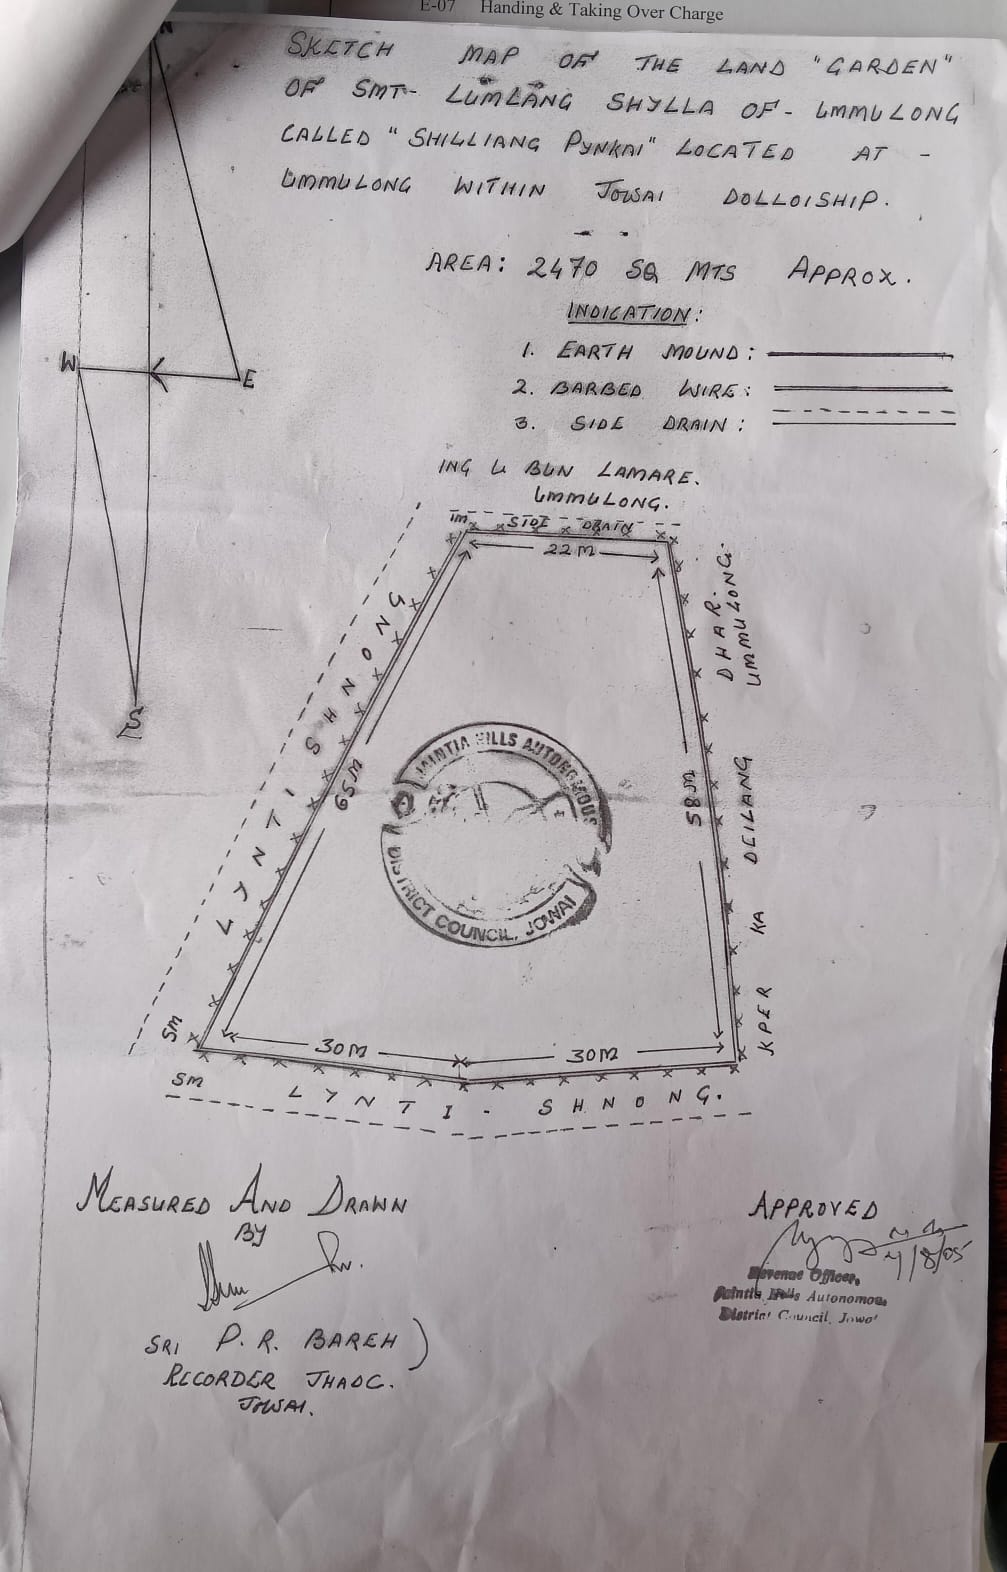 E-07 Handing & Taking Over Charge
SKETCH MAP OF THE LAND "GARDEN"
OF SMT- LUMLANG SHYLLA OF - UMMULONG
CALLED "SHILLIANG PYNKAI" LOCATED AT -
UMMULONG WITHIN JOWAI DOLLOISHIP.
AREA: 2470 SQ MTS APPROX.
INDICATION:
1. EARTH MOUND:
2. BARBED WIRE:
3. SIDE DRAIN:
N
W
E
S
ING U BUN LAMARE.
UMMULONG.
1m SIDE DRAIN
22 M
LYNTI SHNONG
65M
58M
DHAR.
UMMULONG.
KPER KA DEILANG
JAINTIA HILLS AUTONOMOUS
DISTRICT COUNCIL, JOWAI
5m
30M
30M
5m
LYNTI - SHNONG.
MEASURED AND DRAWN
BY
SRI P. R. BAREH)
RECORDER JHADC.
JOWAI.
APPROVED
4/8/05
Revenue Officer,
Jaintia Hills Autonomous
District Council, Jowai